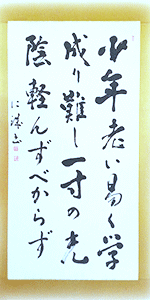 少年老い易く学
成り難し一寸の光
陰軽んずべからず